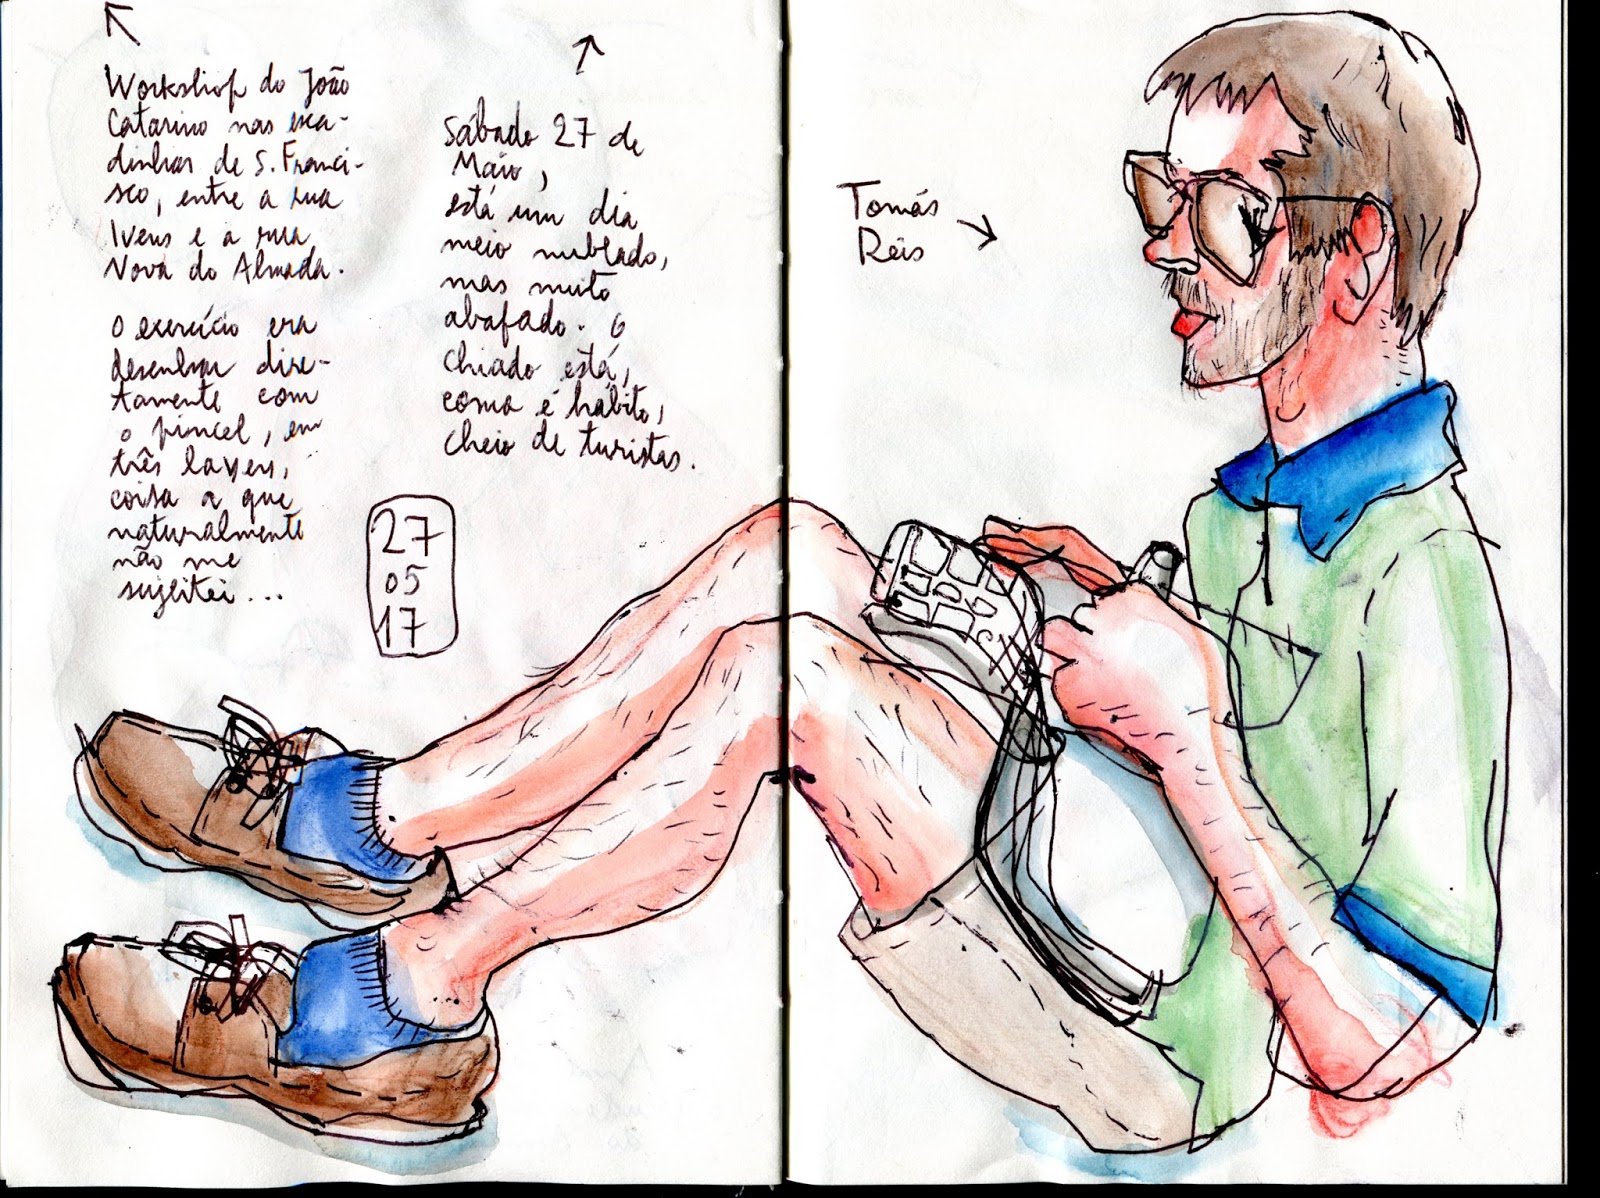 Workshop do João
Catarino nas esca-
dinhas de S. Franci-
sco, entre a rua
Ivens e a rua
Nova do Almada.
O exercício era
desenhar dire-
tamente com
o pincel, em
três layers,
coisa a que
naturalmente
não me
sujeitei...
Sábado 27 de
Maio,
está um dia
meio nublado,
mas muito
abafado. O
Chiado está,
como é hábito,
cheio de turistas.
27
05
17
Tomás
Reis